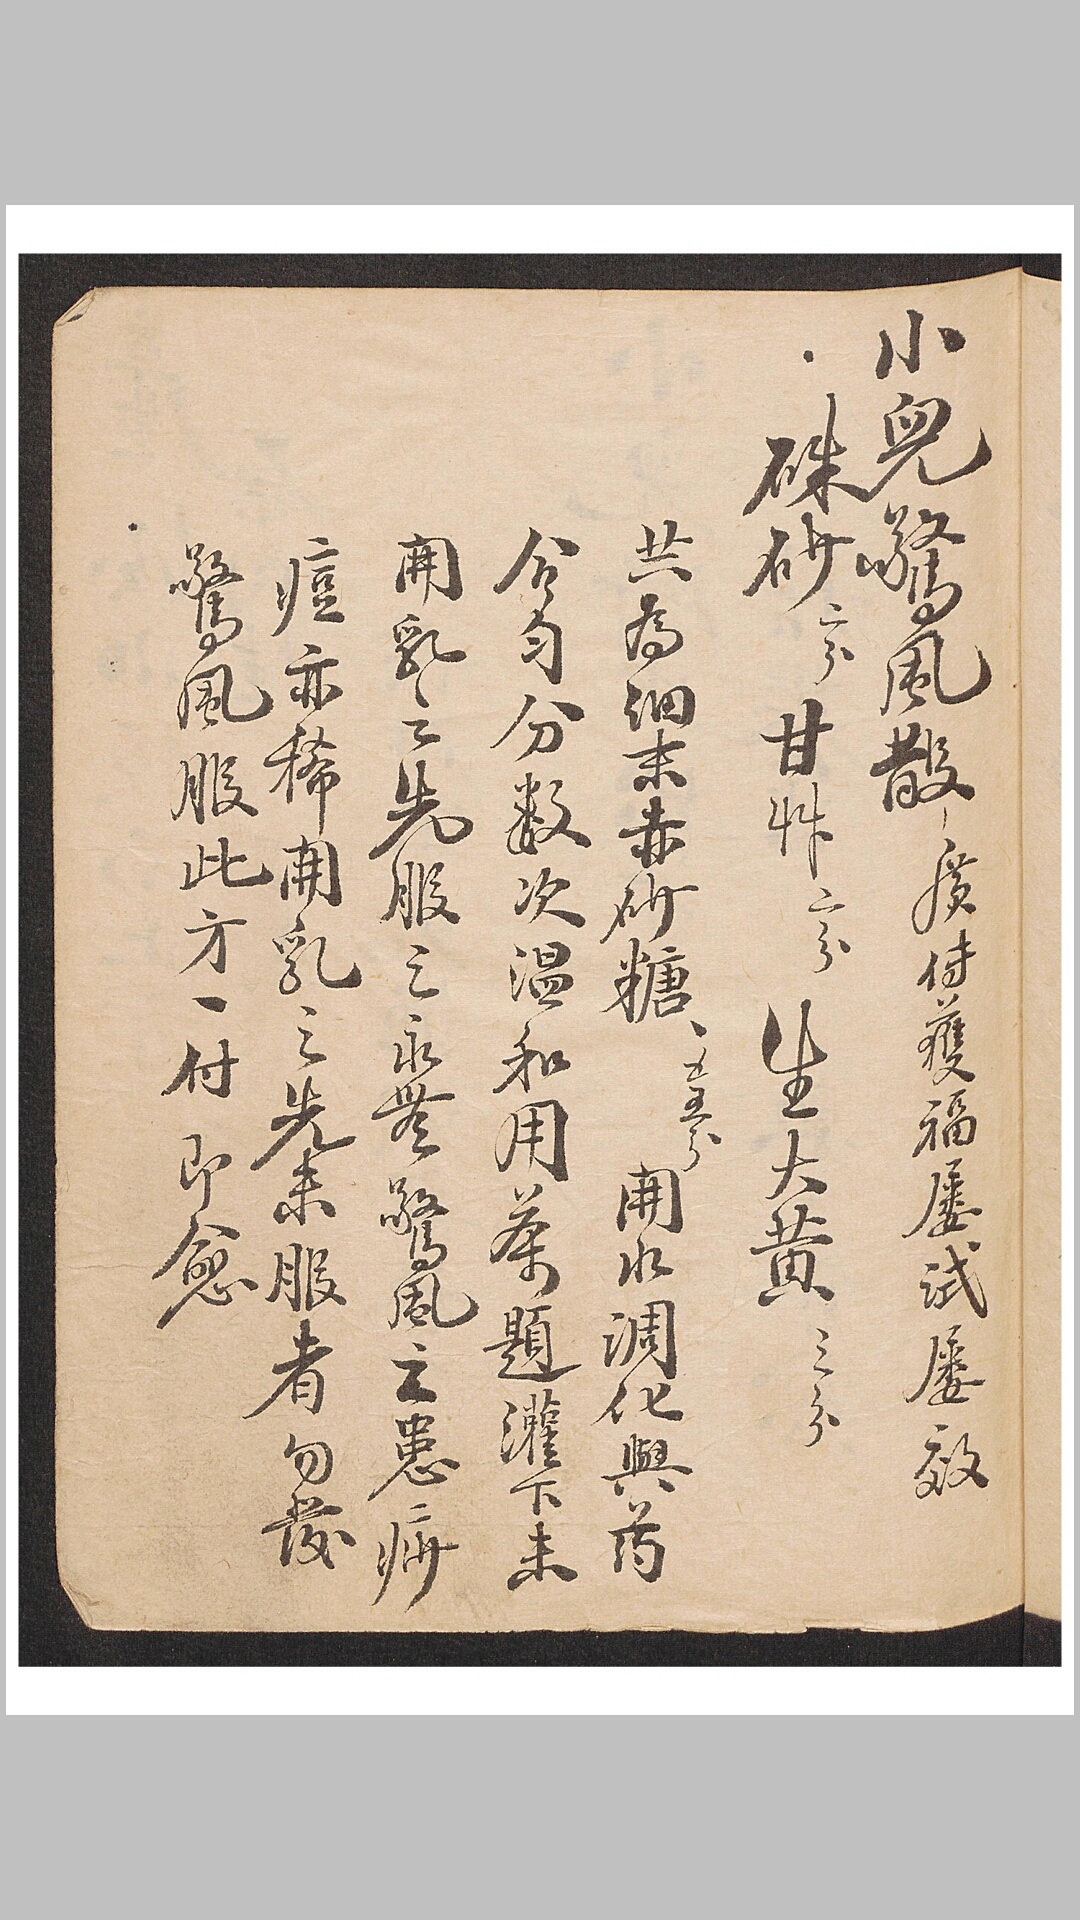 小兒驚風散廣付獲福屡試屡效
硃砂二分甘艸二分生大黄三分
共為细末赤砂糖五分開水調化與药
合匀分数次温和用茶題灌下未
開乳之先服之永無驚風之患痳
痘亦稀開乳之先未服者勿發
驚風服此方一付即愈